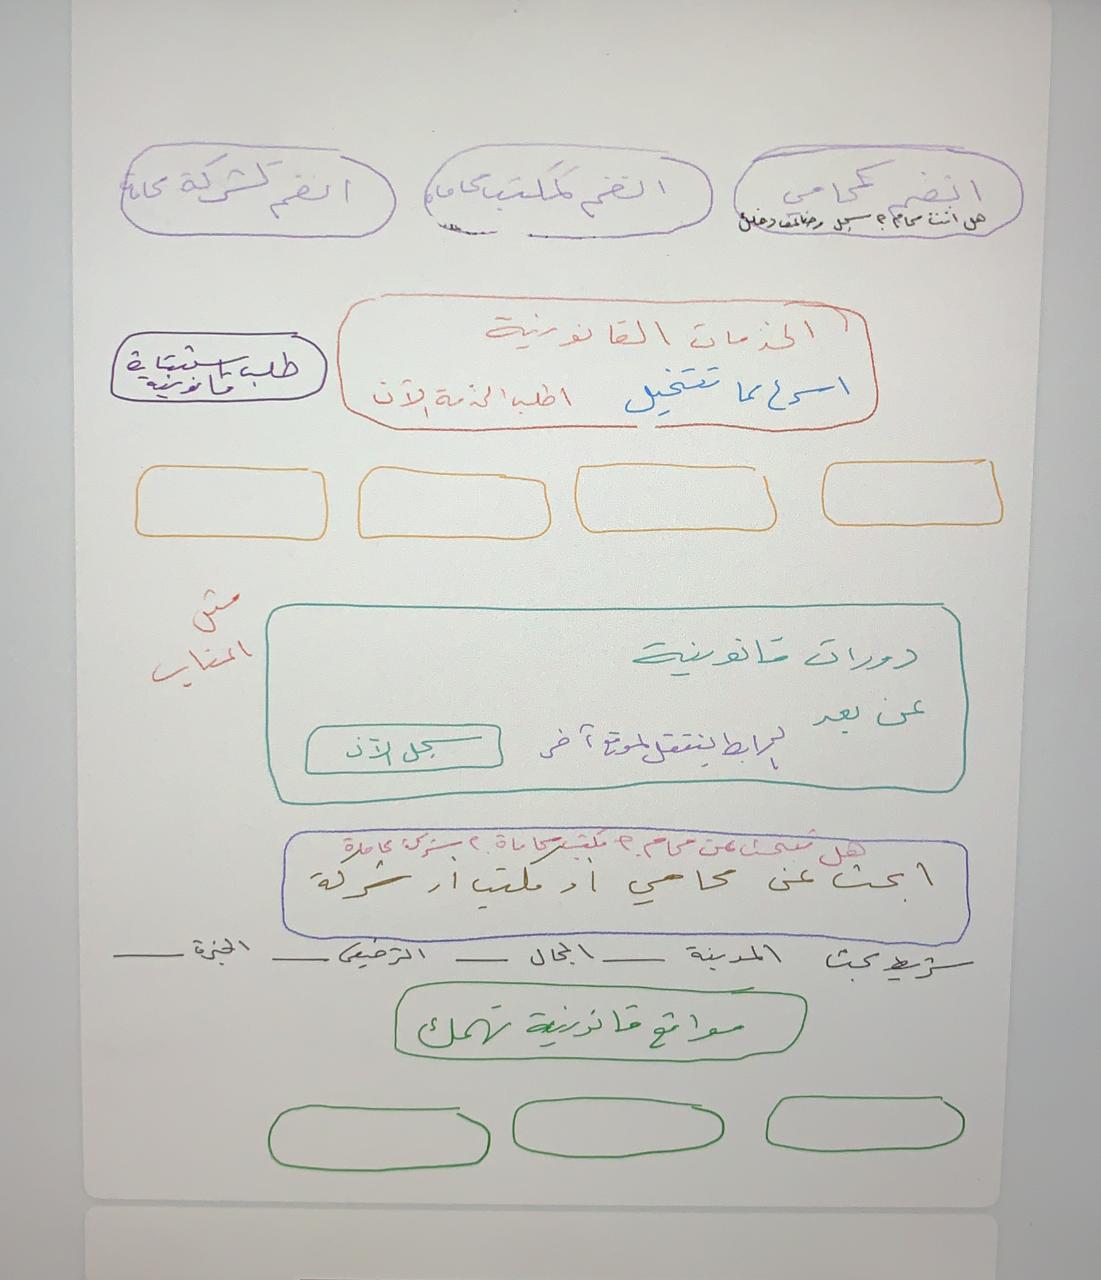 انضم كمحامي
هل أنت محام؟ سجل وضاعف دخلك
انضم كمكتب محاماة
انضم كشركة محاماة
الخدمات القانونية
اسرع مما تتخيل
اطلب الخدمة الآن
طلب استشارة
قانونية
دورات قانونية
عن بعد
الرابط ينتقل لموقع آخر
سجل الآن
مثل
هل تبحث عن محام؟ مكتب محاماة؟ شركة محاماة
ابحث عن محامي أو مكتب أو شركة
شريط بحث المدينة المجال الترخيص الخبرة
مواقع قانونية تهمك